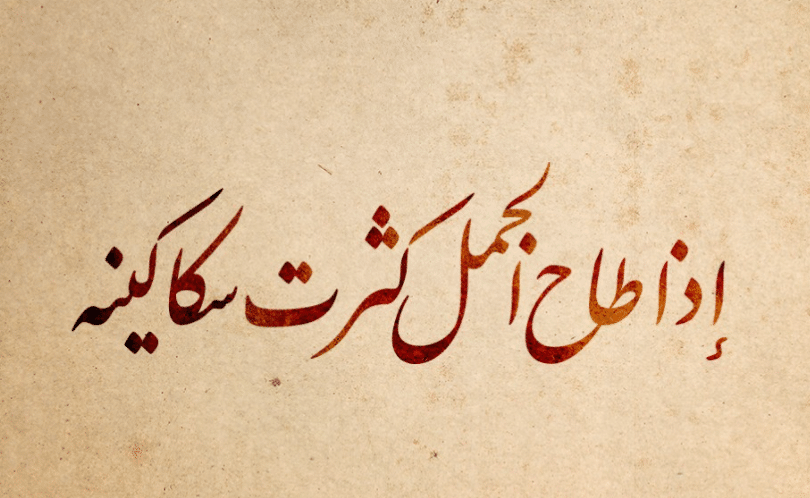 إذا طاح الجمل كثرت سكاكينه